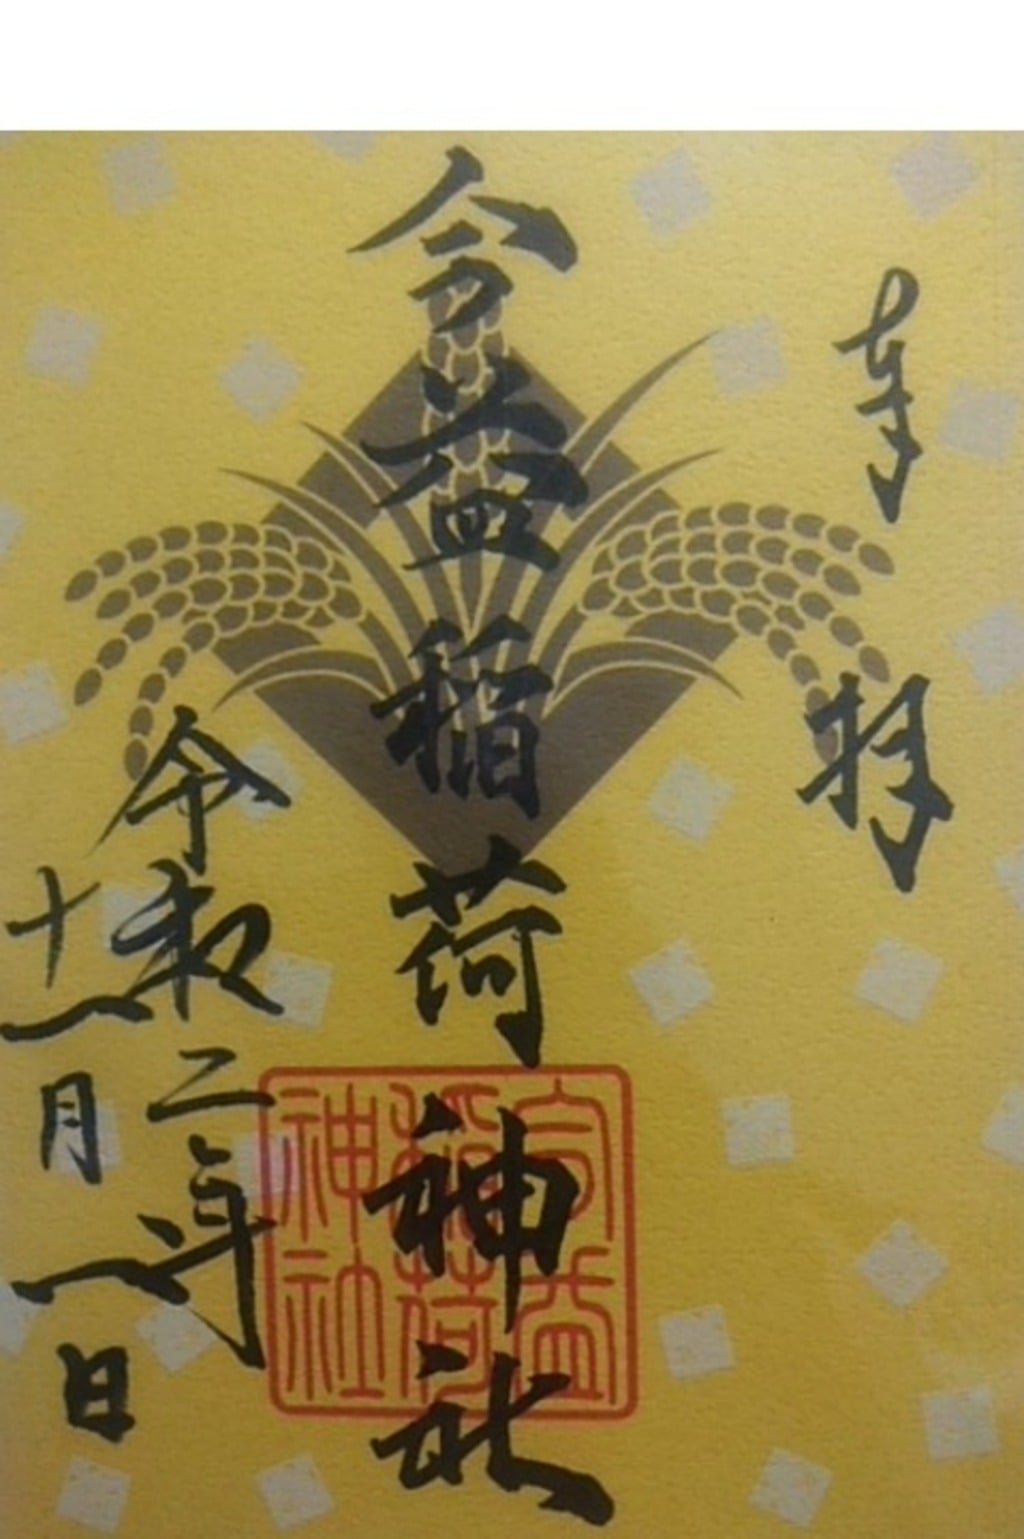 奉拝
今益稲荷神社
令和二年
十一月一日
今益
稲荷
神社